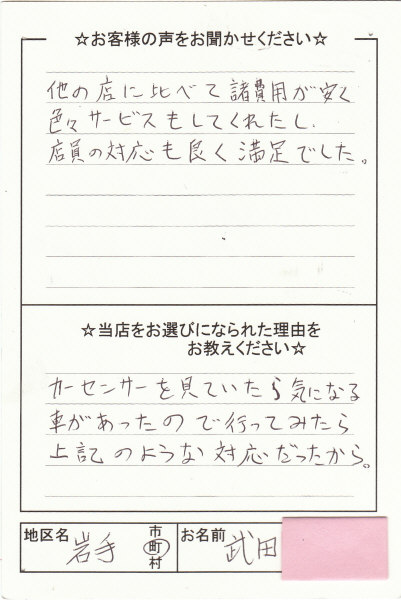 ☆お客様の声をお聞かせください☆
他の店に比べて諸費用が安く
色々サービスもしてくれたし、
店員の対応も良く満足でした。
☆当店をお選びになられた理由を
お教えください☆
カーセンサーを見ていたら気になる
車があったので行ってみたら
上記のような対応だったから。
地区名 岩手 市町村 お名前 武田